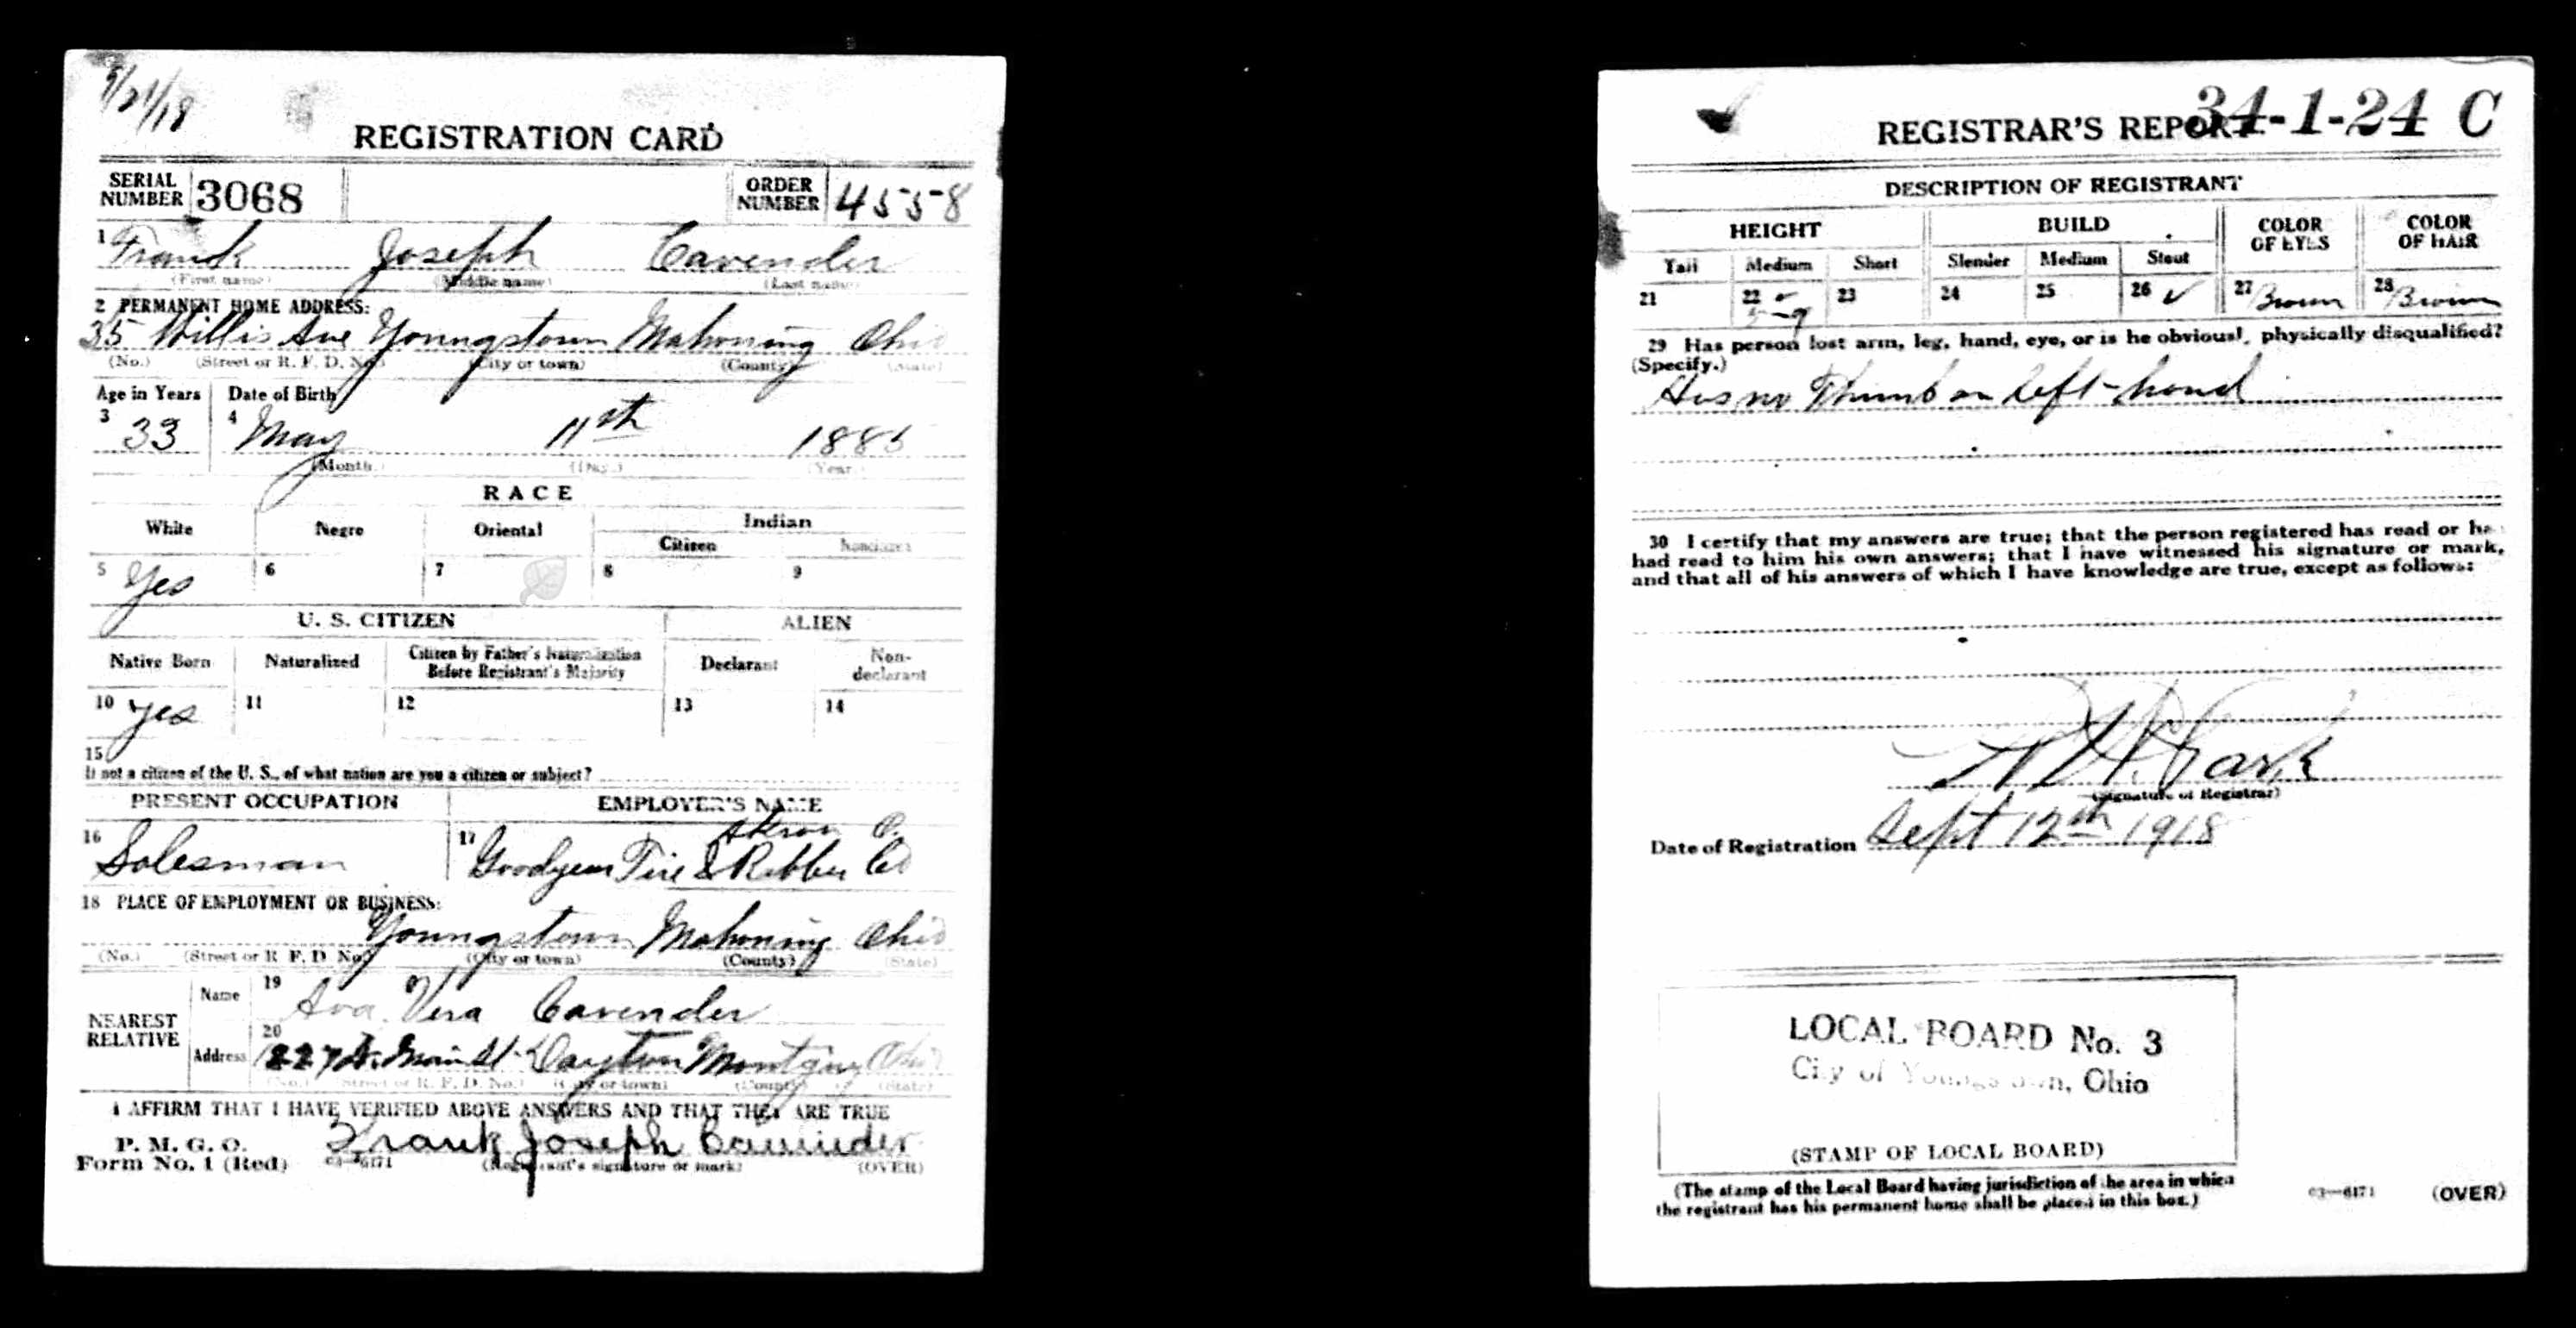 9/21/18
REGISTRATION CARD
SERIAL NUMBER 3068 ORDER NUMBER 4558
1 Frank Joseph Cavender
(First name) (Middle name) (Last name)
2 PERMANENT HOME ADDRESS:
35 Willis Ave Youngstown Mahoning Ohio
(No.) (Street or R. F. D. No.) (City or town) (County) (State)
Age in Years Date of Birth
3 33 4 May 11st 1885
(Month.) (Day.) (Year.)
RACE
White Negro Oriental Indian
Citizen Noncitizen
5 Yes 6 7 8 9
U. S. CITIZEN ALIEN
Native Born Naturalized Citizen by Father's Naturalization Before Registrant's Majority Declarant Non-declarant
10 yes 11 12 13 14
15
If not a citizen of the U. S., of what nation are you a citizen or subject?
PRESENT OCCUPATION EMPLOYER'S NAME
Akron O.
16 Salesman 17 Goodyear Tire & Rubber Co
18 PLACE OF EMPLOYMENT OR BUSINESS:
Youngstown Mahoning Ohio
(No.) (Street or R. F. D. No.) (City or town) (County) (State)
NEAREST RELATIVE
Name 19 Ava Vera Cavender
Address 20 1227 N. Main St. Dayton Montgmy Ohio
(No.) (Street or R. F. D. No.) (City or town) (County) (State)
I AFFIRM THAT I HAVE VERIFIED ABOVE ANSWERS AND THAT THEY ARE TRUE
P. M. G. O.
Form No. 1 (Red) 03—6171 Frank Joseph Cavender
(Registrant's signature or mark) (OVER)
REGISTRAR'S REPORT 34-1-24 C
DESCRIPTION OF REGISTRANT
HEIGHT BUILD COLOR OF EYES COLOR OF HAIR
Tall Medium Short Slender Medium Stout
21 22 ✓ 23 24 25 26 ✓ 27 Brown 28 Brown
5-9
29 Has person lost arm, leg, hand, eye, or is he obviously physically disqualified?
(Specify.)
Has no Thumb on left-hand
30 I certify that my answers are true; that the person registered has read or has
had read to him his own answers; that I have witnessed his signature or mark,
and that all of his answers of which I have knowledge are true, except as follows:
(Signature of Registrar)
Date of Registration Sept 12th 1918
LOCAL BOARD No. 3
City of Youngstown, Ohio
(STAMP OF LOCAL BOARD)
(The stamp of the Local Board having jurisdiction of the area in which
the registrant has his permanent home shall be placed in this box.)
03—6171 (OVER)